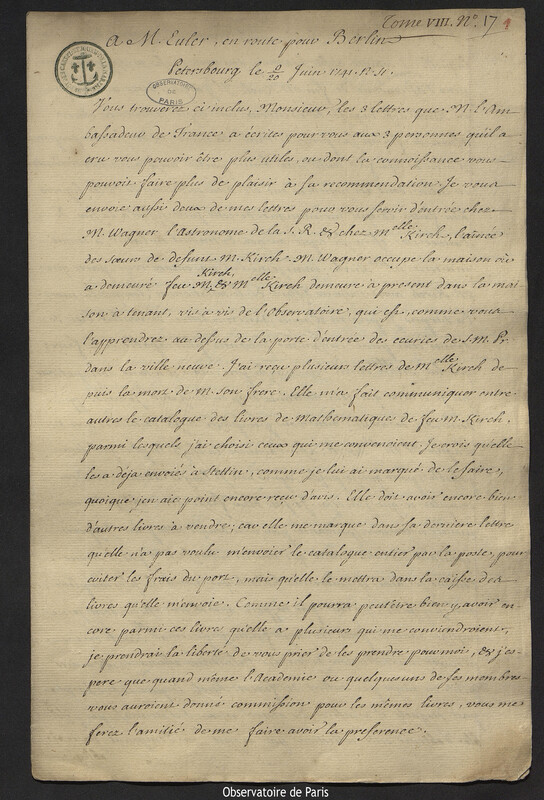 Tome VIII. No. 17
A M. Euler, en route pour Berlin
Petersbourg le 9/20 Juin 1741. N. St.
OBSERVATOIRE DE PARIS
Vous trouverez ci inclus, Monsieur, les 3 lettres que M. l'Am-
bassadeur de France a écrites pour vous aux 3 personnes qu'il a
cru vous pouvoir être plus utiles, ou dont la connoissance vous
pouvoit faire plus de plaisir à sa recommendation. Je vous
envoie aussi deux de mes lettres pour vous servir d'entrée chez
M. Wagner l'Astronome de la S. R. & chez Melle Kirch, l'ainée
des sœurs de defunt M. Kirch. M. Wagner occupe la maison où
a demeuré feu M. Kirch, & Melle Kirch demeure à present dans la mai-
son à tenant, vis à vis de l'Observatoire, qui est, comme vous
l'apprendrez au dessus de la porte d'entrée des ecuries de S. M. Pr.
dans la ville neuve. J'ai reçu plusieurs lettres de Melle Kirch de-
puis la mort de M. son frere. Elle m'a fait communiquer entre
autres le catalogue des livres de Mathématiques de feu M. Kirch,
parmi lesquels j'ai choisi ceux qui me convenoient. Je crois qu'elle
les a déja envoiés à Stettin, comme je lui ai marqué de le faire,
quoique je n'en aie point encore reçu d'avis. Elle doit avoir encore bien
d'autres livres à vendre; car elle me marque dans sa derniere lettre
qu'elle n'a pas voulu m'envoier le catalogue entier par la poste, pour
eviter les frais du port, mais qu'elle le mettra dans la caisse des
livres qu'elle m'envoie. Comme il pourra peutêtre bien y avoir en-
core parmi ces livres qu'elle a plusieurs qui me conviendroient,
je prendrai la liberté de vous prier de les prendre pour moi, & j'es-
pere que quand même l'Academie ou quelques uns de ses membres
vous auroient donné commission pour les mêmes livres, vous me
ferez l'amitié de me faire avoir la preference.
Observatoire de Paris